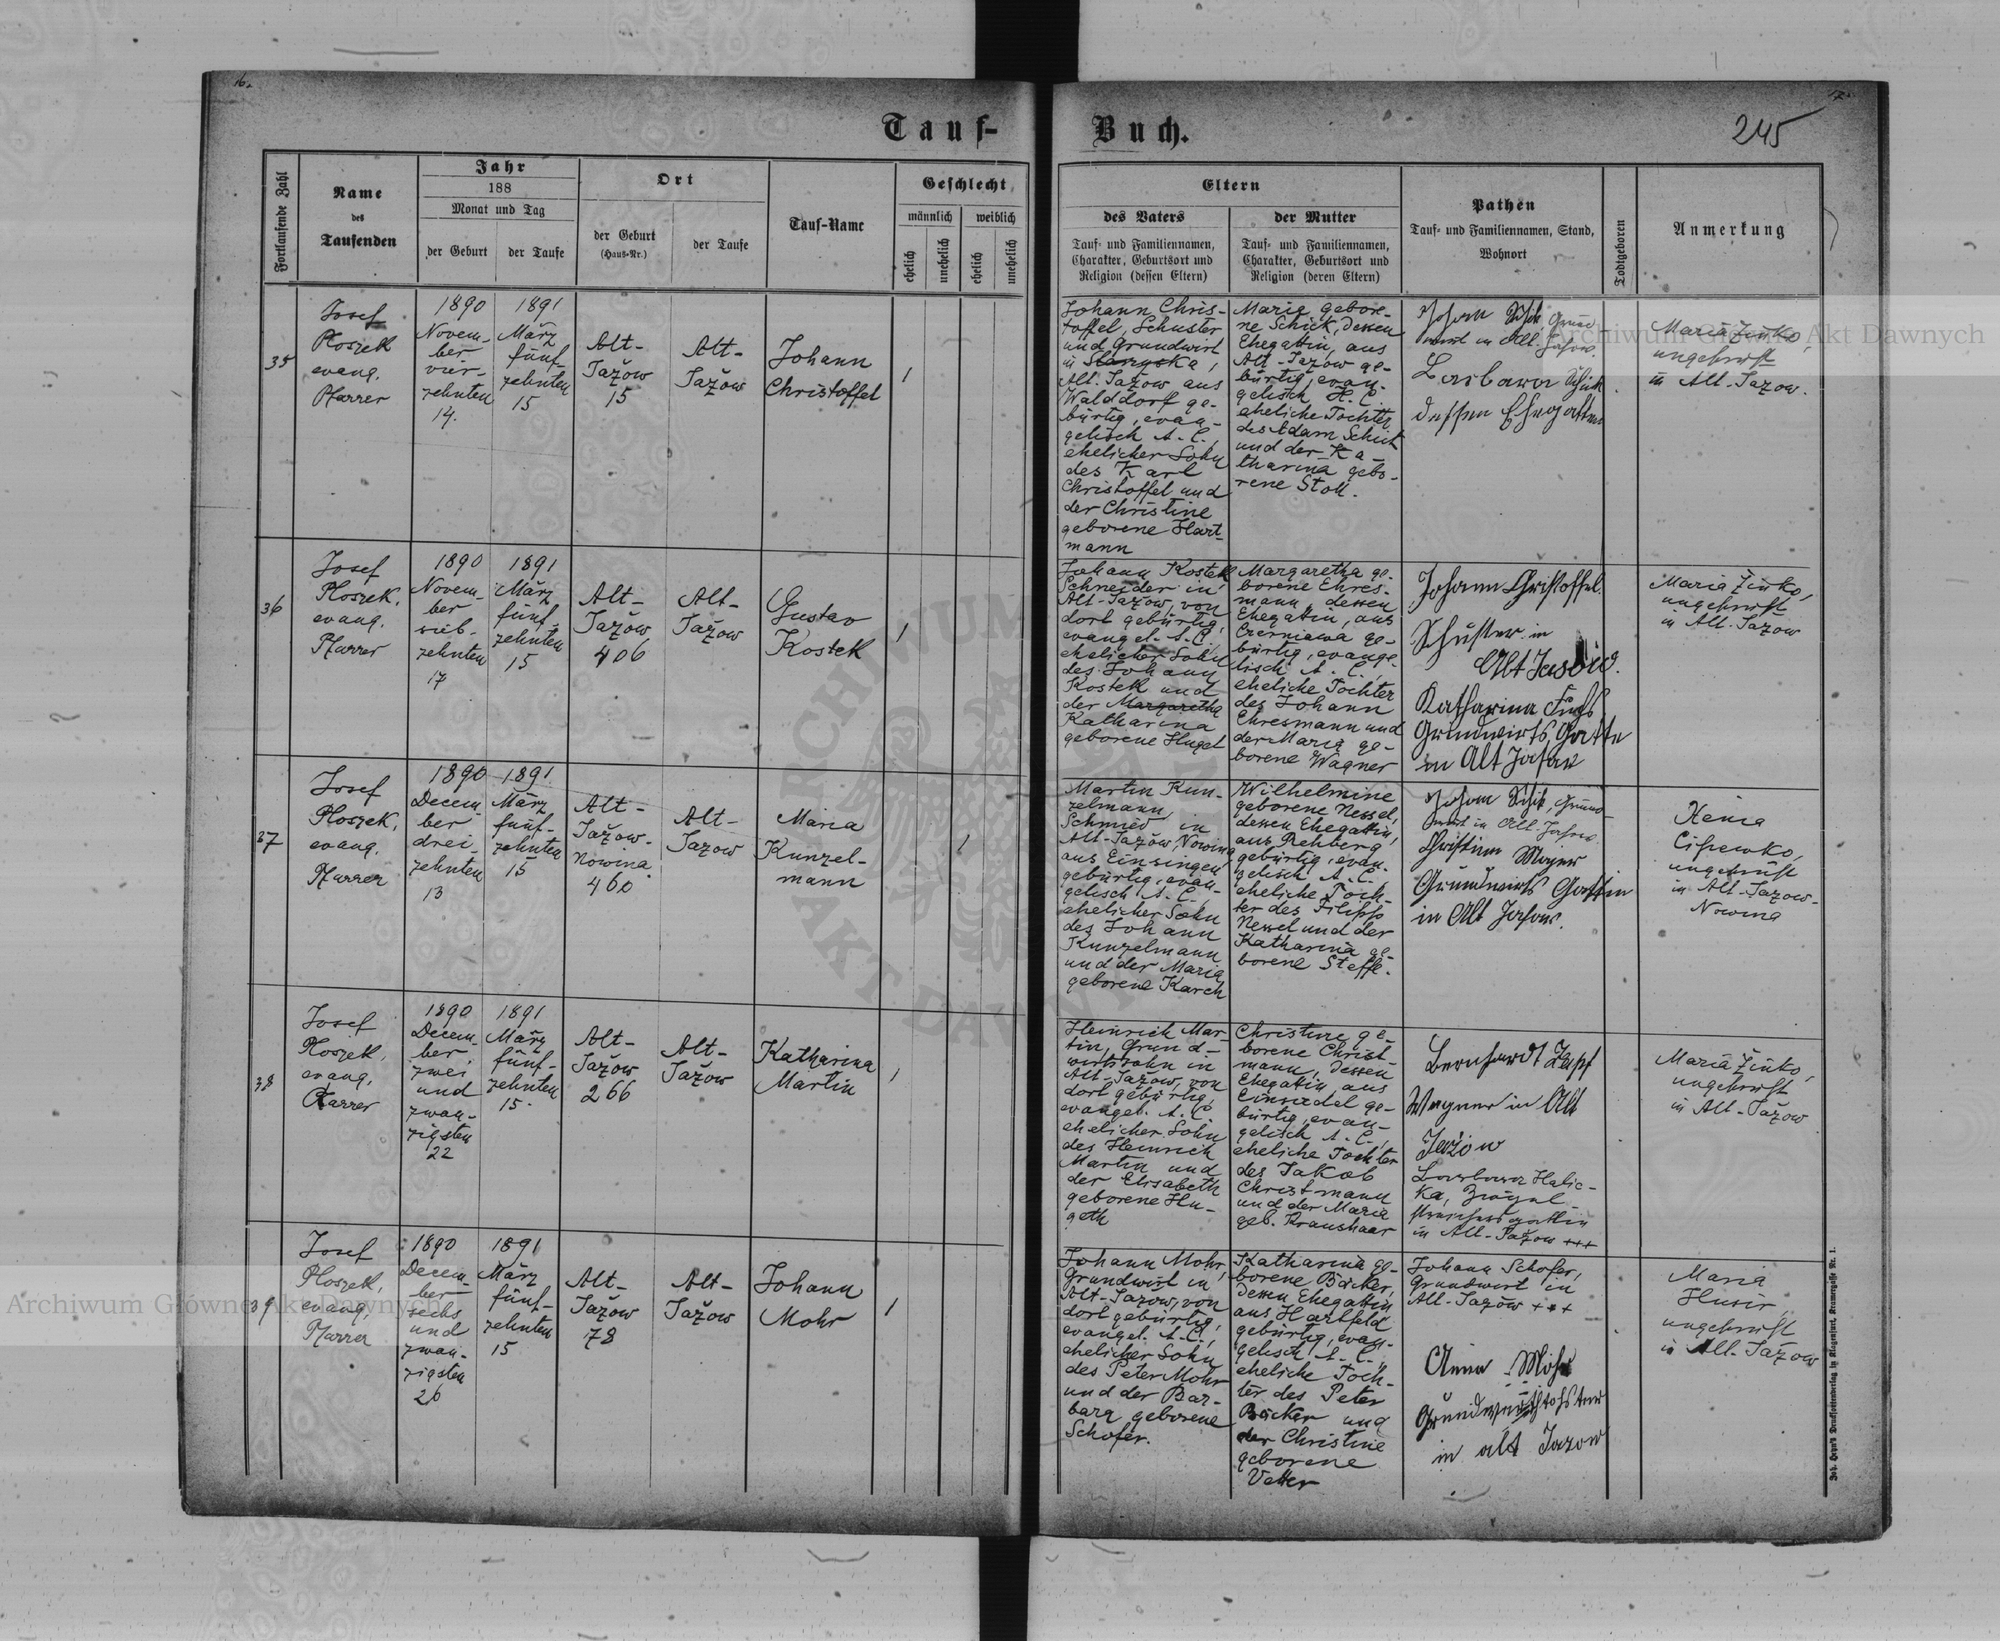 16.
17.
Tauf-
Buch.
245
Fortlaufende Zahl
Name
des
Taufenden
Jahr
188
Monat und Tag
der Geburt
der Taufe
Ort
der Geburt
(Haus-Nr.)
der Taufe
Tauf-Name
Geschlecht
männlich
weiblich
ehelich
unehelich
ehelich
unehelich
Eltern
des Vaters
Tauf- und Familiennamen,
Charakter, Geburtsort und
Religion (dessen Eltern)
der Mutter
Tauf- und Familiennamen,
Charakter, Geburtsort und
Religion (deren Eltern)
Pathen
Tauf- und Familiennamen, Stand,
Wohnort
Todtgeboren
Anmerkung
35
Josef
Ploszek
evang.
Pfarrer
1890
Novem-
ber
vier-
zehnten
14.
1891
März
fünf-
zehnten
15
Alt-
Jažow
15
Alt-
Jažow
Johann
Christoffel
1
Johann Chris-
toffel, Schuster
und Grundwirt
in
Alt-Jažow aus
Walddorf ge-
bürtig, evan-
gelisch A. C.,
ehelicher Sohn
des Karl
Christoffel und
der Christine
geborene Hart-
mann
Maria gebore-
ne Schick, dessen
Ehegattin, aus
Alt-Jazow ge-
bürtig, evan-
gelisch H. C.
eheliche Tochter
des Adam Schick
und der Ka-
tharina gebo-
rene Stoll.
Johann Schik Grund
wirt in Alt. Jasow.
Barbara Schik
dessen Ehegatten
Maria Žinko,
ungeprüft
in Alt-Jazow.
36
Josef
Ploszek,
evang.
Pfarrer
1890
Novem-
ber
sieb-
zehnten
17
1891
März
fünf-
zehnten
15
Alt-
Jažow
406
Alt-
Jažow
Gustav
Kostek
1
Johann Kostek
Schneider in
Alt-Jažow, von
dort gebürtig,
evangel. A. C.,
ehelicher Sohn
des Johann
Kostek und
der Margaretha
Katharina
geborene Hugel
Margaretha ge-
borene Ehres-
mann, dessen
Ehegattin, aus
Czerniawa ge-
bürtig, evange-
lisch A. C.,
eheliche Tochter
des Johann
Ehresmann und
der Maria ge-
borene Wagner
Johann Christoffel
Schuster in
Alt
Katharina Fuchs
Grundwirts Gatte
in Alt Jasow
Maria Žinko,
ungeprüft
in Alt-Jazow
37
Josef
Ploszek,
evang.
Pfarrer
1890
Decem-
ber
drei-
zehnten
13
1891
März
fünf-
zehnten
15
Alt-
Jažow-
Nowina
460
Alt-
Jazow
Maria
Kunzel-
mann
1
Martin Kun-
zelmann,
Schmied in
Alt-Jažow Nowina
aus Einsingen
gebürtig, evan-
gelisch A. C.,
ehelicher Sohn
des Johann
Kunzelmann
und der Maria
geborene Karch
Wilhelmine
geborene Nessel,
dessen Ehegattin,
aus Rehberg
gebürtig, evan-
gelisch A. C.
eheliche Toch-
ter des Filipp
Nessel und der
Katharina ge-
borene Steffe.
Johann Schik, Grund-
wirt in Alt-Jasow.
Christina Mayer
Grundwirts Gattin
in Alt Jasow.
Xenia
ungeprüft
in Alt-Jazow-
Nowina
38
Josef
Ploszek,
evang.
Pfarrer
1890
Decem-
ber
zwei
und
zwan-
zigsten
22
1891
März
fünf-
zehnten
15.
Alt-
Jažow
266
Alt-
Jažow
Katharina
Martin
1
Heinrich Mar-
tin, Grund-
wirtssohn in
Alt-Jazow, von
dort gebürtig,
evangel. A. C.
ehelicher Sohn
des Heinrich
Martin und
der Elisabeth
geborene Hu-
geth
Christine ge-
borene Christ-
mann, dessen
Ehegattin, aus
Einsiedel ge-
bürtig, evan-
gelisch A. C.,
eheliche Tochter
des Jakob
Christmann
und der Maria
geb. Kraushaar
Bernhardt Zapf
Wagner in Alt
Jažow
Barbara Halic-
ka,
in Alt-Jažow +++
Maria Žinko,
ungeprüft
in Alt-Jažow
39
Josef
Ploszek,
evang.
Pfarrer
1890
Decem-
ber
sechs
und
zwan-
zigsten
26
1891
März
fünf-
zehnten
15
Alt-
Jažow
78
Alt-
Jažow
Johann
Mohr
1
Johann Mohr,
Grundwirt in
Alt-Jažow, von
dort gebürtig,
evangel. A. C.,
ehelicher Sohn
des Peter Mohr
und der Bar-
bara geborene
Schofer.
Katharina ge-
borene Bäcker,
dessen Ehegattin
aus Hartfeld
gebürtig, evan-
gelisch A. C.,
eheliche Toch-
ter des Peter
Bäcker und
der Christine
geborene
Vetter
Johann Schofer,
Grundwirt in
Alt-Jažow +++
Anna Mohr
in alt Jazow
Maria
Husir,
ungeprüft
in Alt-Jažow
Archiwum Główne Akt Dawnych
Archiwum Główne Akt Dawnych
ARCHIWUM
AKT DAWNYCH
Joh. Heyn's Drucksortenverlag in Klagenfurt, Kramergasse Nr. 1.